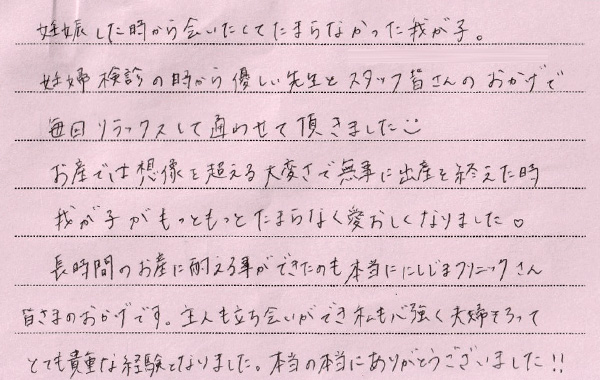 妊娠した時から会いたくてたまらなかった我が子。
妊婦検診の時から優しい先生とスタッフ皆さんのおかげで
毎回リラックスして通わせて頂きました☺
お産では想像を超える大変さで無事に出産を終えた時
我が子がもっともっとたまらなく愛おしくなりました♡
長時間のお産に耐える事ができたのも本当ににしじまクリニックさん
皆さまのおかげです。主人も立ち会いができ私も心強く夫婦そろって
とても貴重な経験となりました。本当の本当にありがとうございました!!